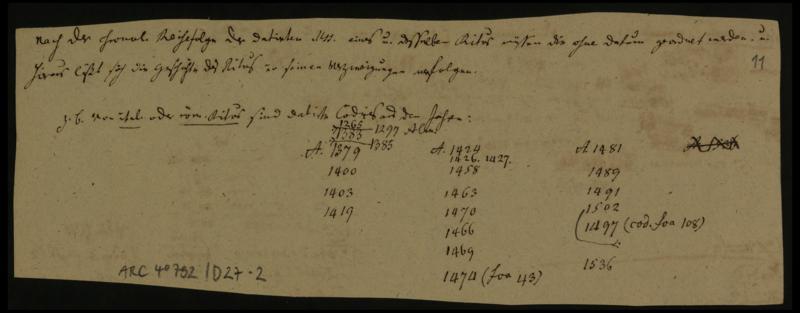 Nach der chronol. Reihenfolge der datirten Mss. eines u. desselben Ritus müssen die ohne Datum geordnet werden. u.
hieraus läßt sich die Geschichte des Ritus in seinen Verzweigungen verfolgen.
11
z. B. vom ital. oder röm. Ritus sind datirte Codices aus den Jahren:
1265
1383 1297
A. 1379 1385
1400
1403
1419
A. 1424
1426. 1427.
1458
1463
1470
1466
1469
1474 (foa 43)
A 1481
1489
1491
1502
(1497 (cod. foa 108)
1536
ARC 4° 792 / D27-2